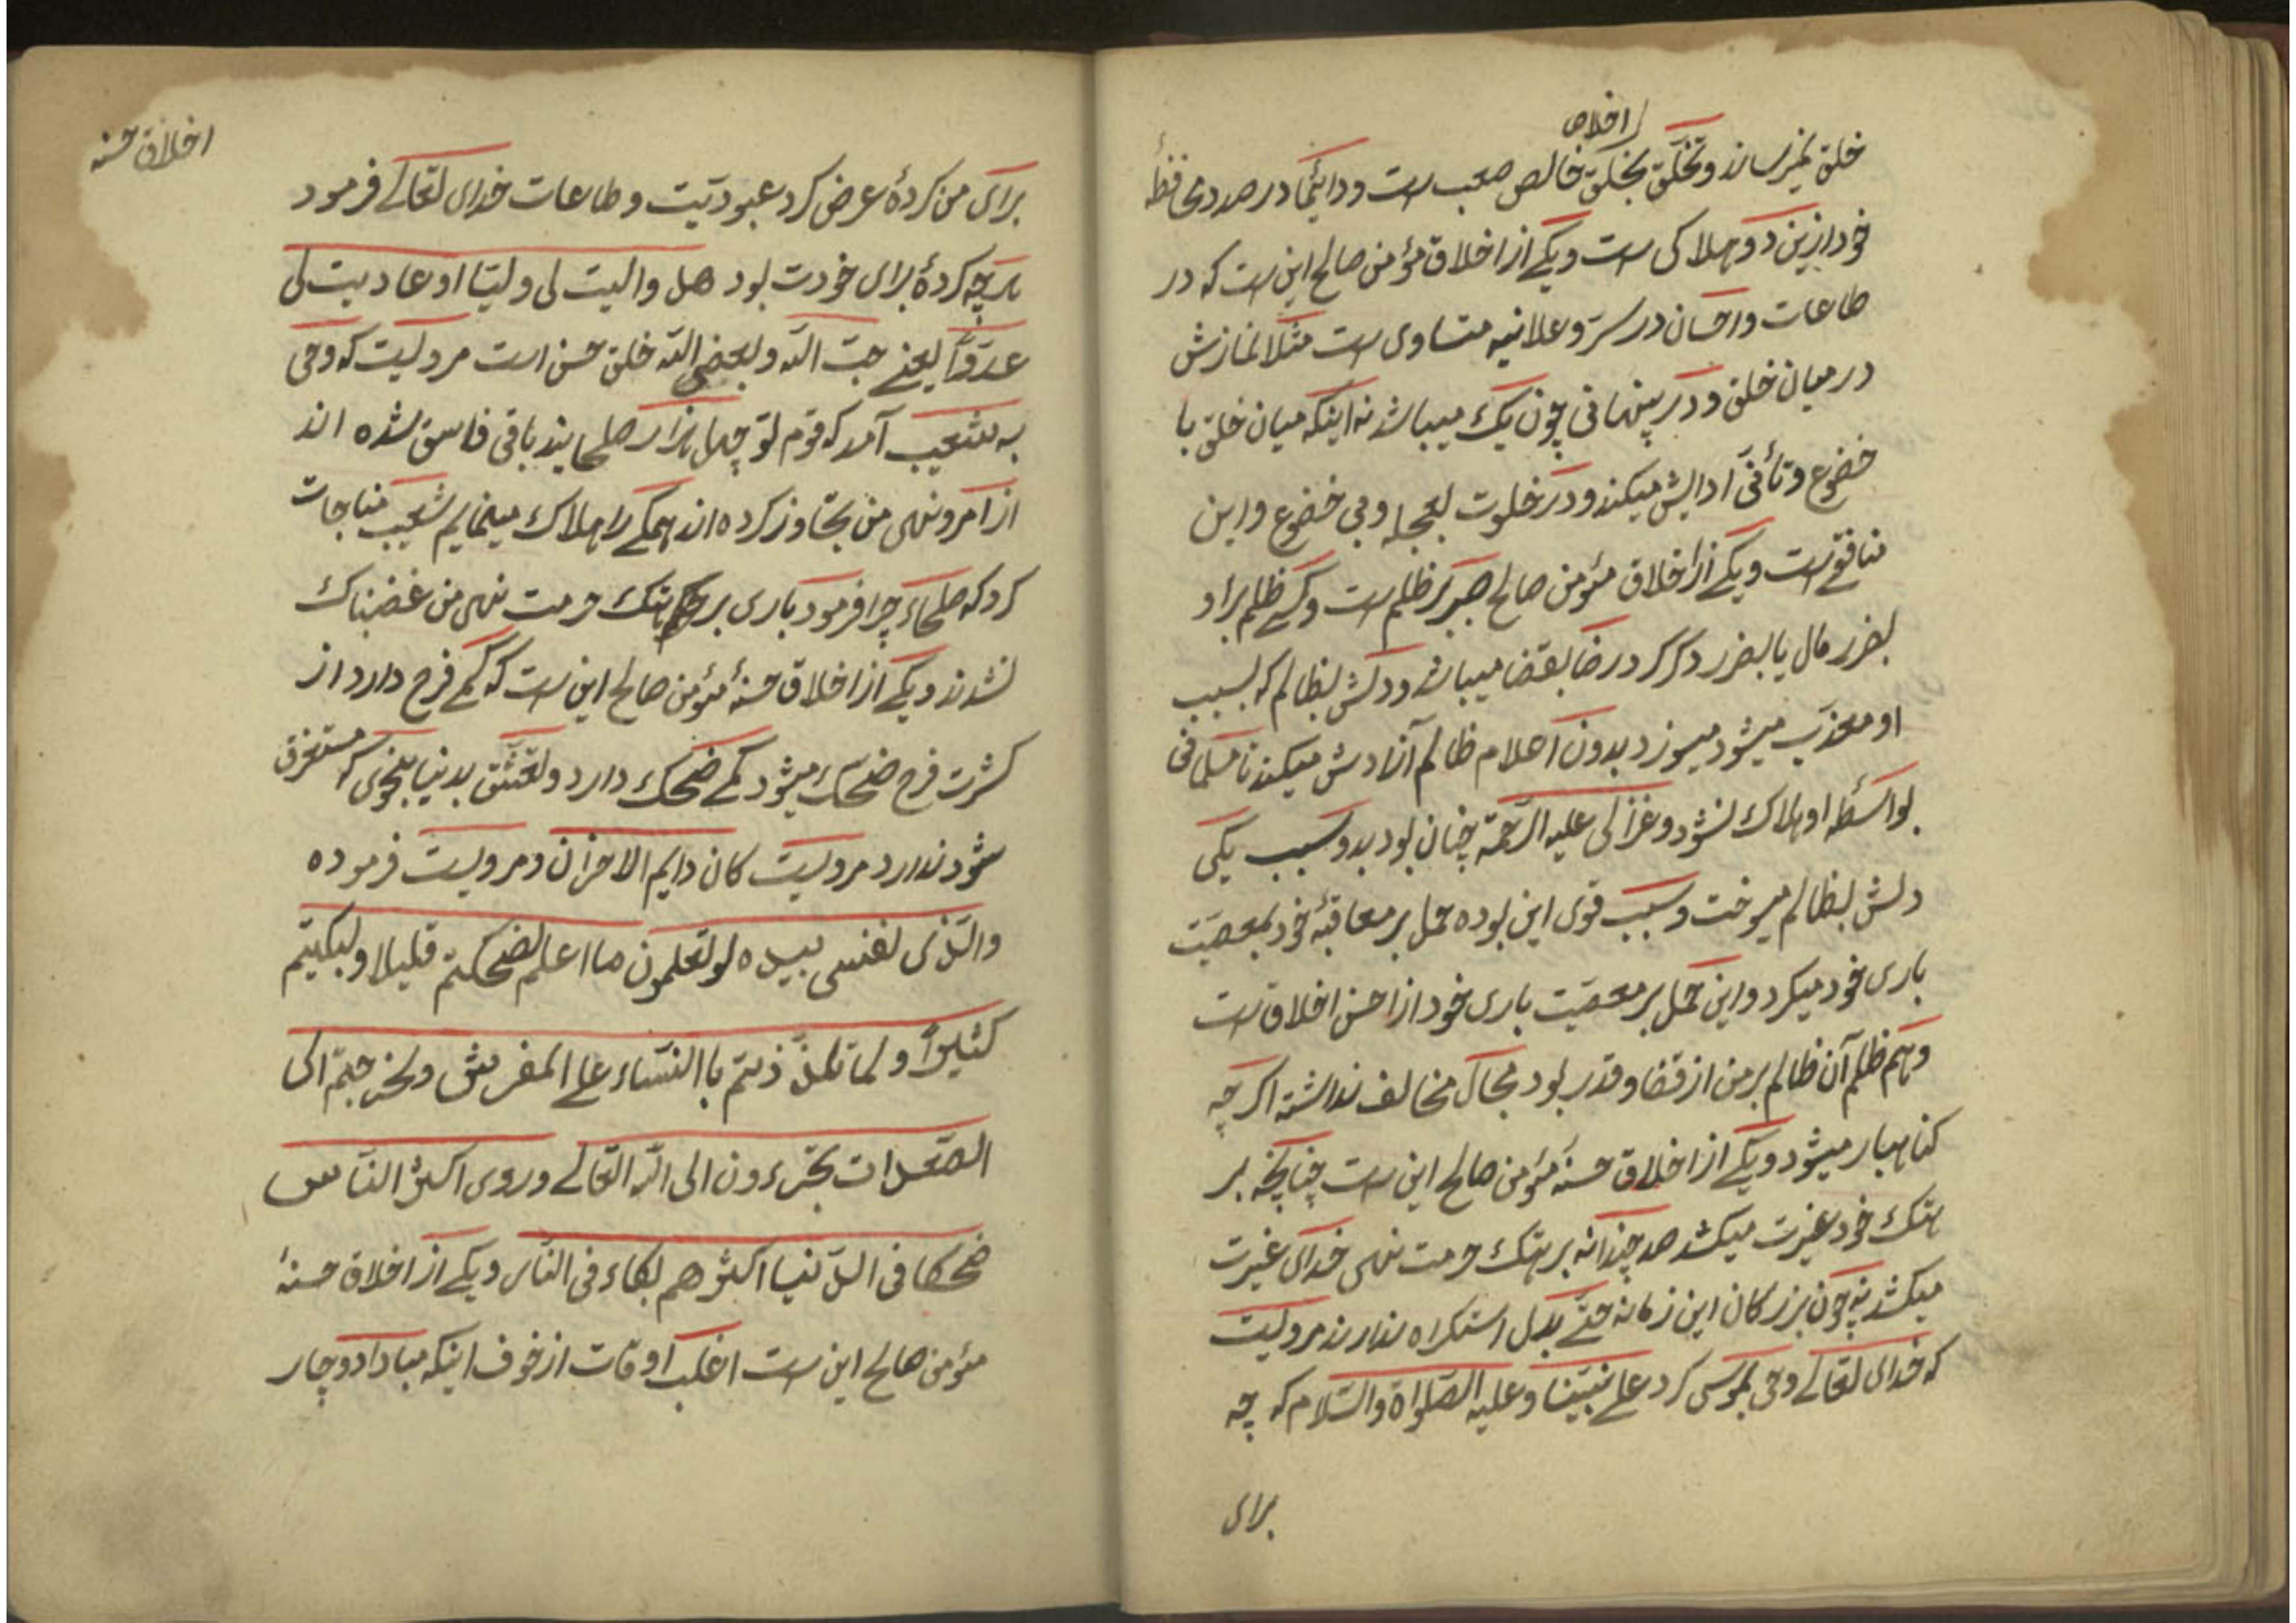 اخلاص
خلق نمیرساند و تخلّق بخلق خالص صعب است و دائیما در صدد محافظهٔ
خود ازین دو هلاکی است و یکے از اخلاق مؤمن صالح این است که در
طاعات و احسان در سرّ و علانیه متساوی است مثلا نمازش
در میان خلق و در پنهانی چون یک میباشد نه اینکه میان خلق با
خضوع و تأنّی ادایش میکند و در خلوت بعجله و بی خضوع و این
منافقے است و یکے از اخلاق مؤمن صالح صبر بر ظلم است و کسے ظلم بر او
بضرر مال یا بضرر دگر کرد رضا بقضا میباشد و دلش بظالم که بسبب
او معذب میشود میسوزد بدون اعلام ظالم آزادش میکند تا مسلمانی
بواسطهٔ او هلاک نشود و غزالی علیه الرّحمة چنان بود بدو سبب یکی
دلش بظالم میسوخت و سبب قوی این بوده حمل بر معاقبهٔ خود بمعصیّت
باری خود میکرد و این حمل بر معصیّت باری خود از احسن اخلاق است
و هم ظلم آن ظالم بر من از قضا و قدر بود مجال مخالف نداشته اگر چه
گناهبار میشود و یکے از اخلاق حسنهٔ مؤمن صالح این است چنانچه بر
هتک خود غیرت میکشد صد چندانه بر هتک حرمت نهی خدای غیرت
میکشد نه چون بزرگان این زمانه حتّے بدل استکراه ندارند مرویست
که خدای تعالے وحی بموسی کرد علے نبیّنا و علیه الصّلواة والسّلام که چه
برای
اخلاق حسنه
برای من کردهٔ عرض کرد عبودیّت و طاعات خدای تعالے فرمود
هرچه کردهٔ برای خودت بود هل والیت لی ولیّا او عادیت لی
عدوّاً یعنے حبّ اللّه و بغض اللّه خلق حسن است مرویست که وحی
به شعیب آمد که قوم تو چهل هزار صلحایند باقی فاسق شده اند
از امر و نهی من تجاوز کرده اند همگے را هلاک مینمایم شعیب مناجات
کرد که صلحاء چرا فرمود باری بر هتک حرمت نهی من غضبناک
نشدند و یکے از اخلاق حسنهٔ مؤمن صالح این است که کم فرح دارد از
کثرت فرح ضحک میشود کمے ضحک دارد و تعشّق بدنیا بنحوی که مستغرق
شود ندارد مرویست کان دایم الاحزان و مرویست فرموده
والّذی نفسی بیده لو تعلمون ما اعلم لضحکتم قلیلا ولبکیتم
کثیراً و لما تلذّذتم باالنّساء علے المفریش ولخرجتم الی
الصّعدات تجّرءون الی اللّه التعالے وروی اکثر النّاس
ضحکا فی الدّنیا اکثر هم بکاء فی النّاس و یکے از اخلاق حسنهٔ
مؤمن صالح این است اغلب اوقات از خوف اینکه مبادا دوچار